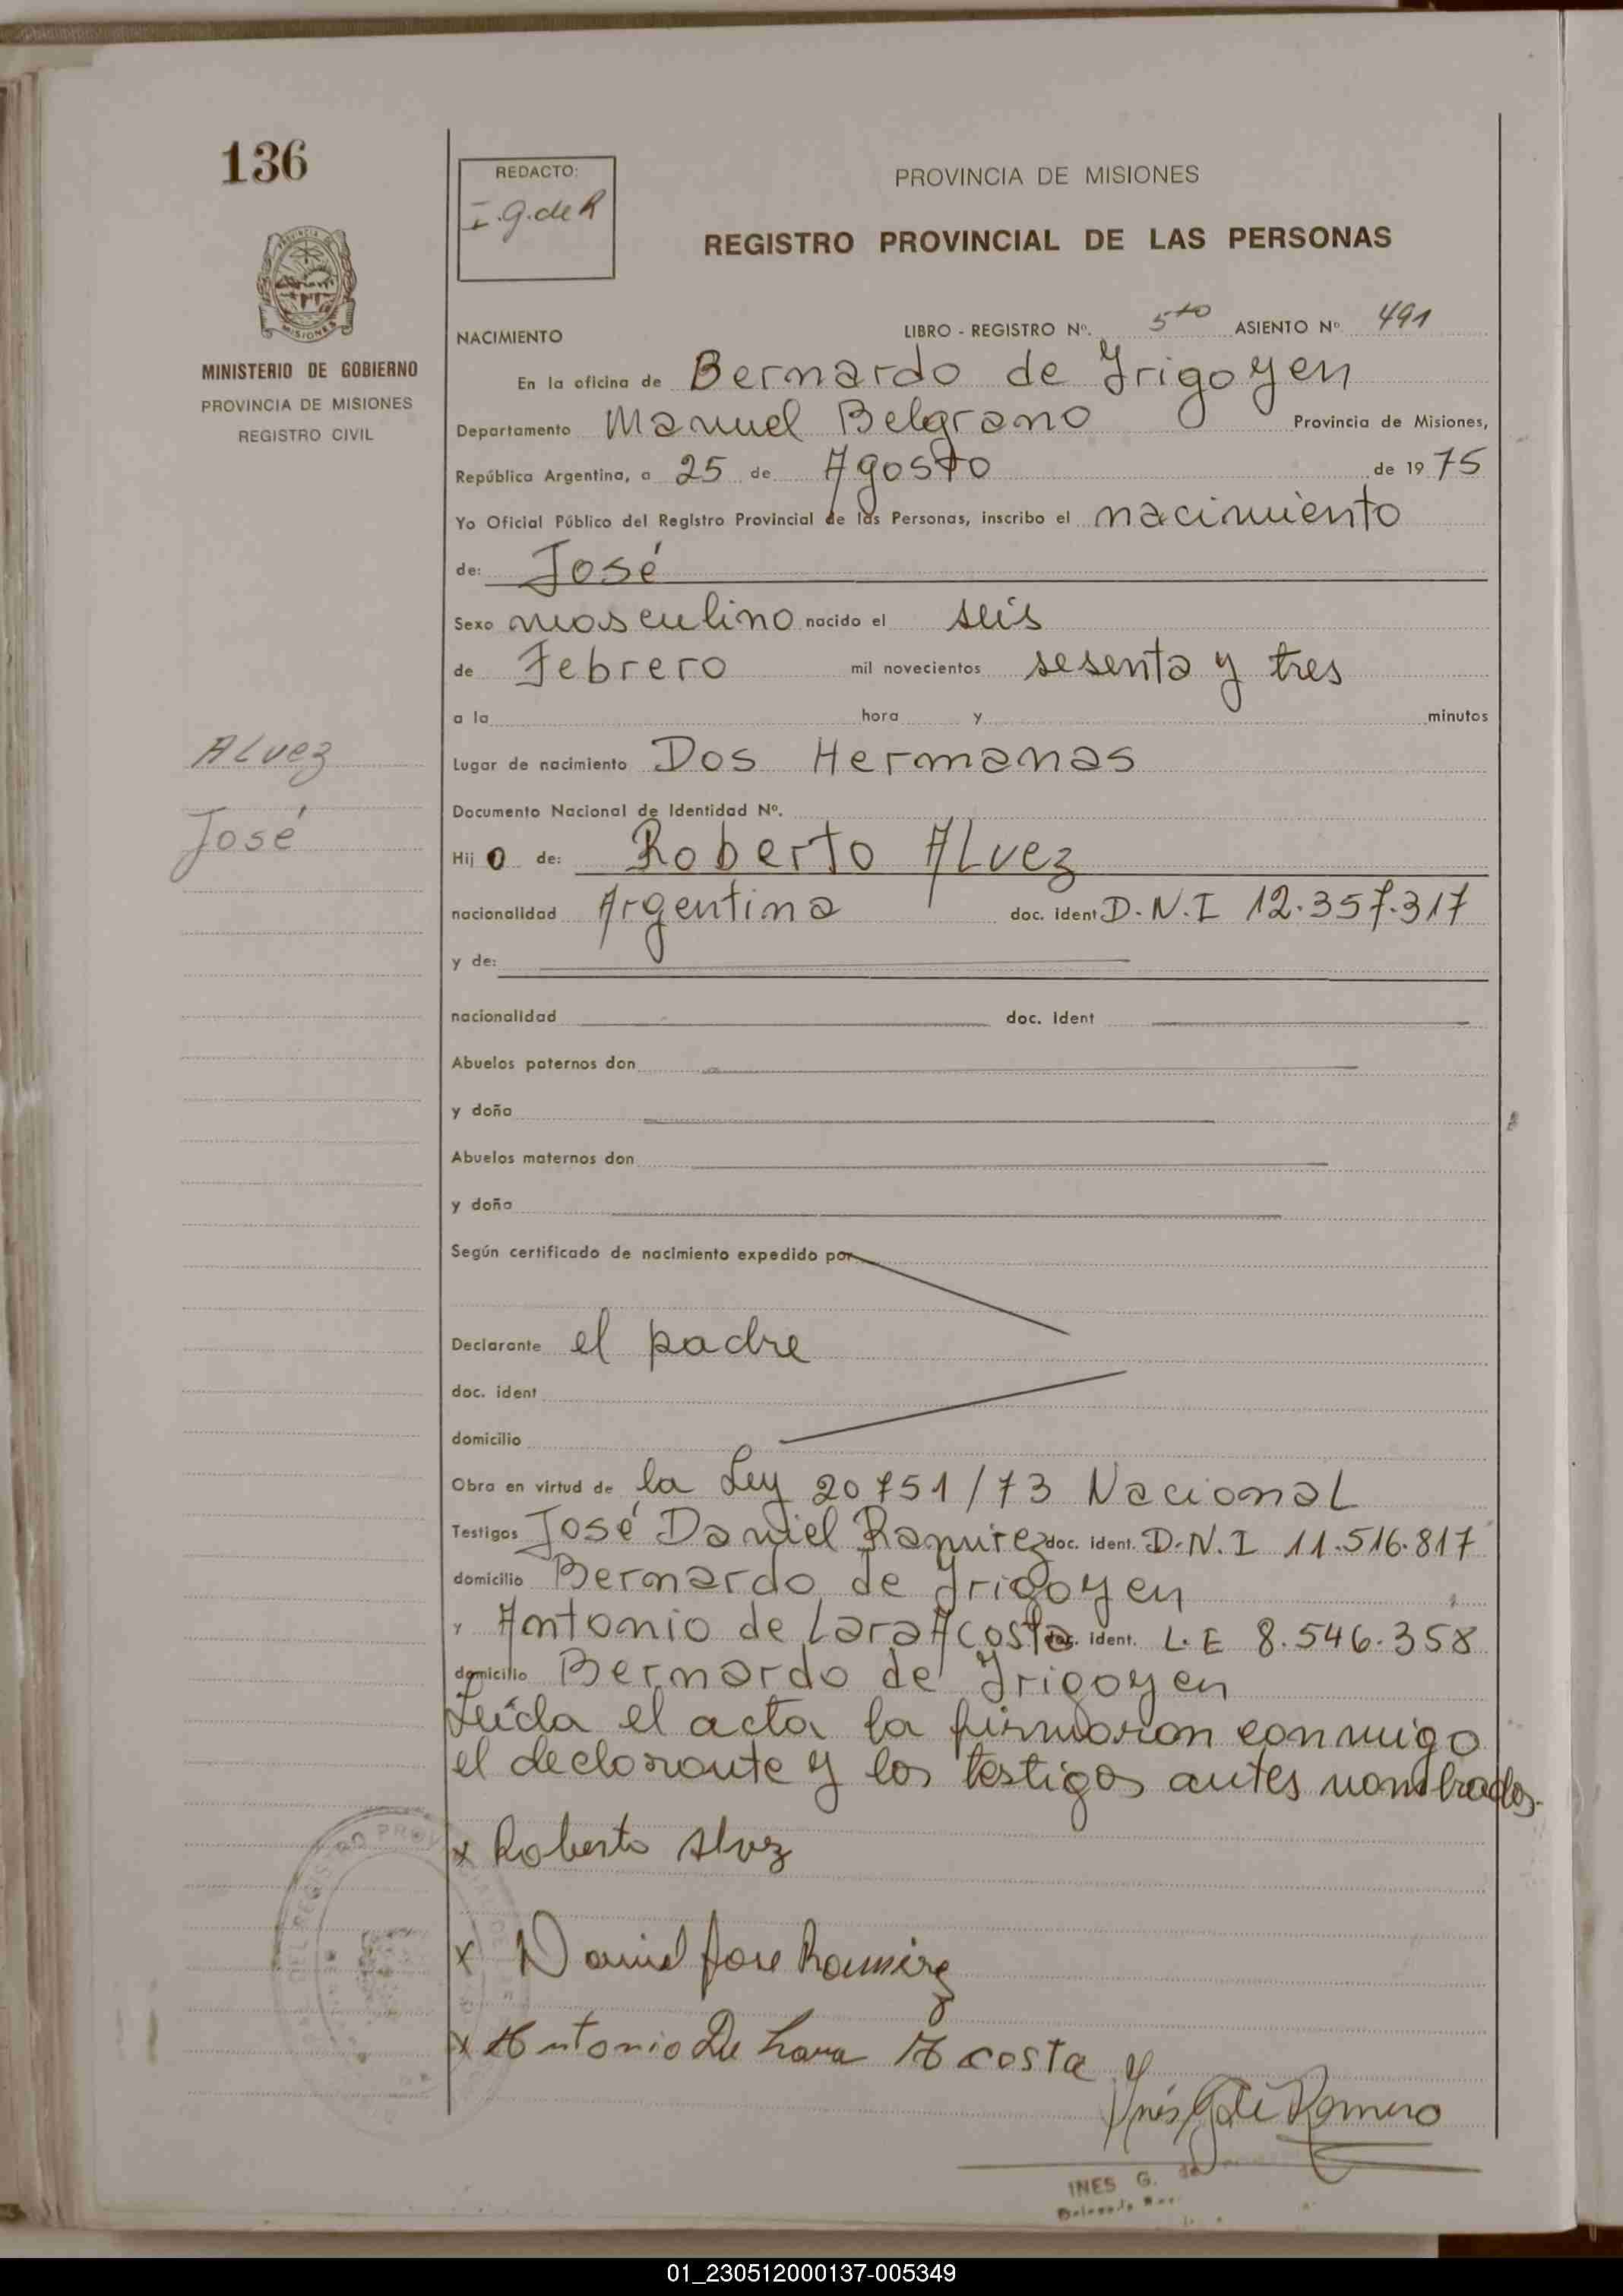 136
REDACTO:
I.G. de R
PROVINCIA DE MISIONES
REGISTRO PROVINCIAL DE LAS PERSONAS
MISIONES
MINISTERIO DE GOBIERNO
PROVINCIA DE MISIONES
REGISTRO CIVIL
NACIMIENTO LIBRO - REGISTRO Nº. 5to ASIENTO Nº 491
En la oficina de Bernardo de Irigoyen
Departamento Manuel Belgrano Provincia de Misiones,
República Argentina, a 25 de Agosto de 1975
Yo Oficial Público del Registro Provincial de las Personas, inscribo el nacimiento
de: José
Sexo masculino nacido el seis
de Febrero mil novecientos sesenta y tres
a la hora y minutos
Alvez
José
Lugar de nacimiento Dos Hermanas
Documento Nacional de Identidad Nº.
Hijo de: Roberto Alvez
nacionalidad Argentina doc. ident D.N.I 12.357.317
y de:
nacionalidad doc. ident
Abuelos paternos don
y doña
Abuelos maternos don
y doña
Según certificado de nacimiento expedido por
Declarante el padre
doc. ident
domicilio
Obra en virtud de la Ley 20751/73 Nacional
Testigos José Daniel Ramirez doc. ident. D.N.I 11.516.817
domicilio Bernardo de Irigoyen
y Antonio de Lara Acosta doc. ident. L.E 8.546.358
domicilio Bernardo de Irigoyen
Leída el acta la firmaron conmigo
el declarante y los testigos antes nombrados.
x Roberto Alvez
x Daniel Jose Ramirez
x Antonio De Lara Acosta
Inés G de Romero
INES G. de
01_230512000137-005349